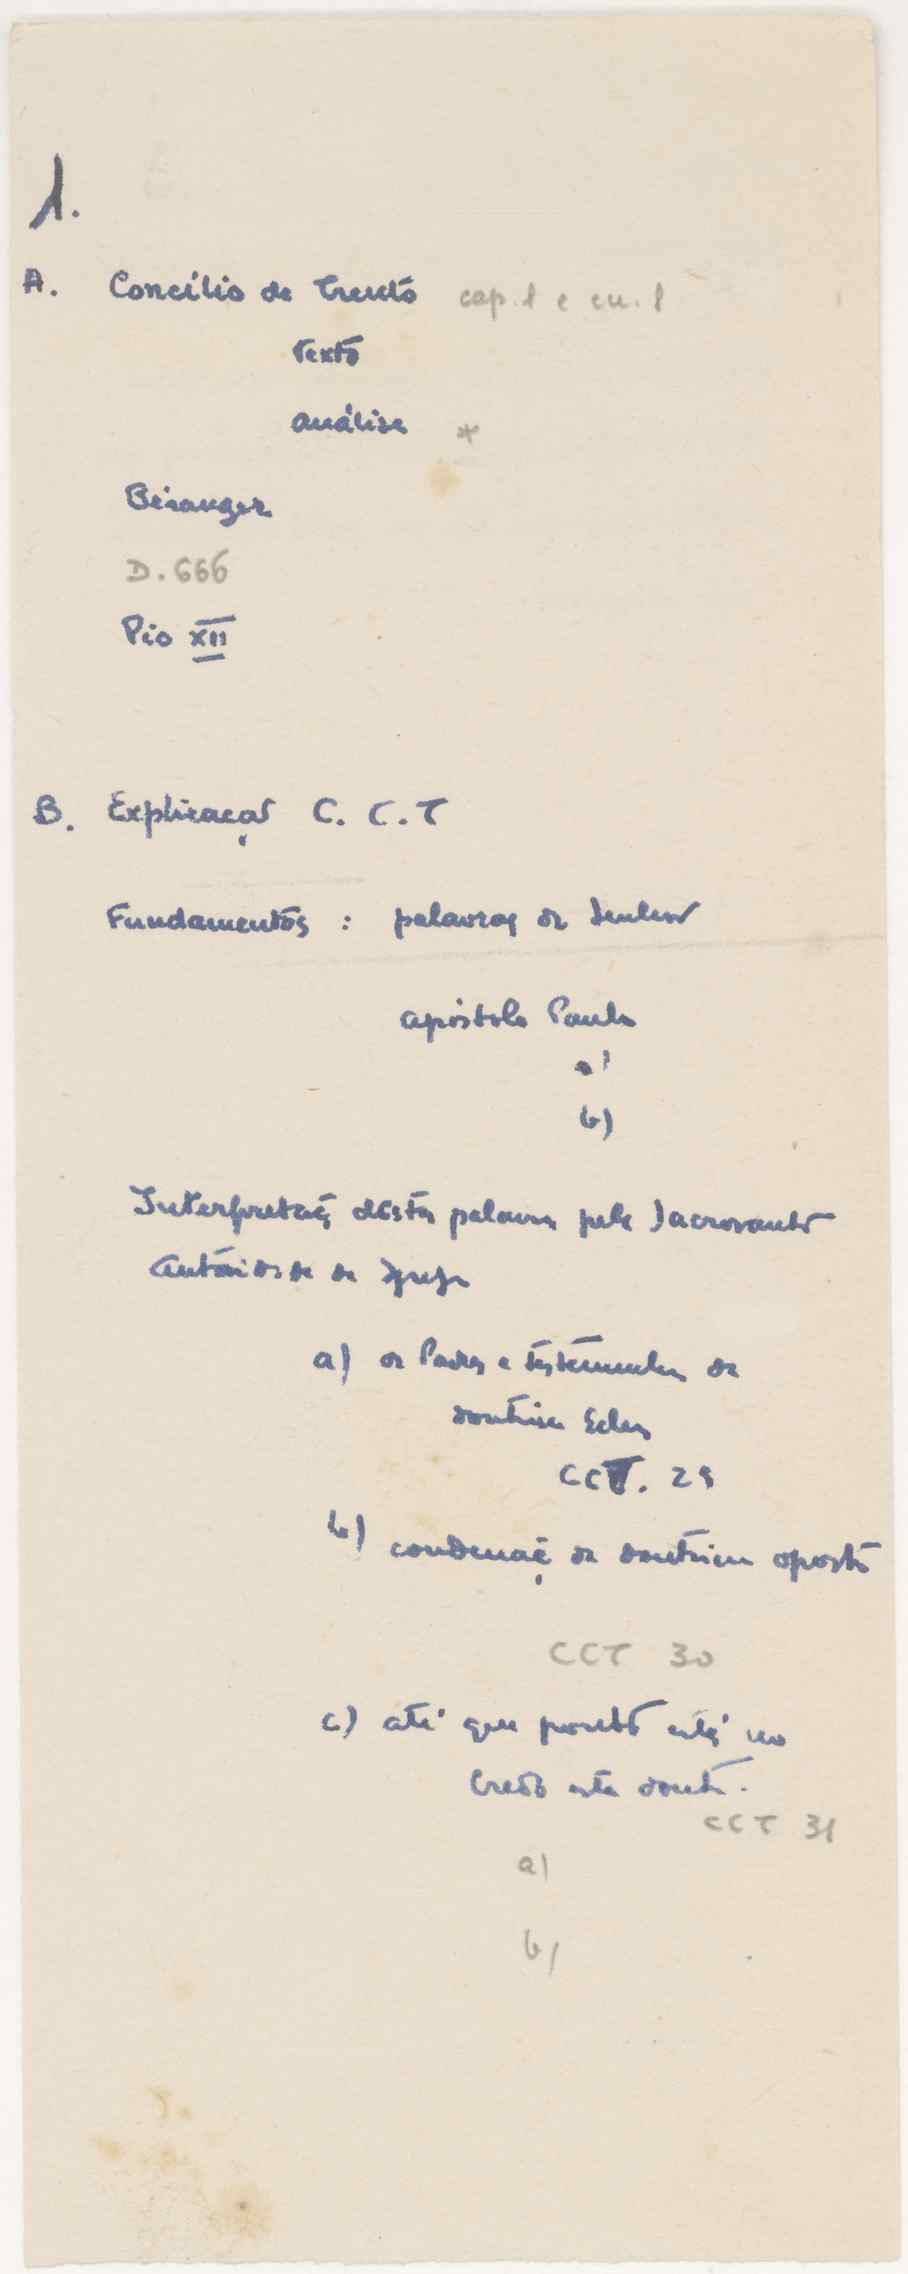 1.
A. Concílio de Trento cap. 1 e cn. 1
Texto
Análise *
Béranger
D. 666
Pio XII
B. Explicação C. C. T
Fundamentos : palavras do Senhor
apóstolo Paulo
a)
b)
Interpretaç destas palavras pela Sacrossanta
Autoridade da Igreja
a) os Padres e testemunhas da
doutrina Ecles
CCT. 29
b) condenaç da doutrina oposta
CCT 30
c) até que ponto está no
Credo esta dout.
CCT 31
a)
b)